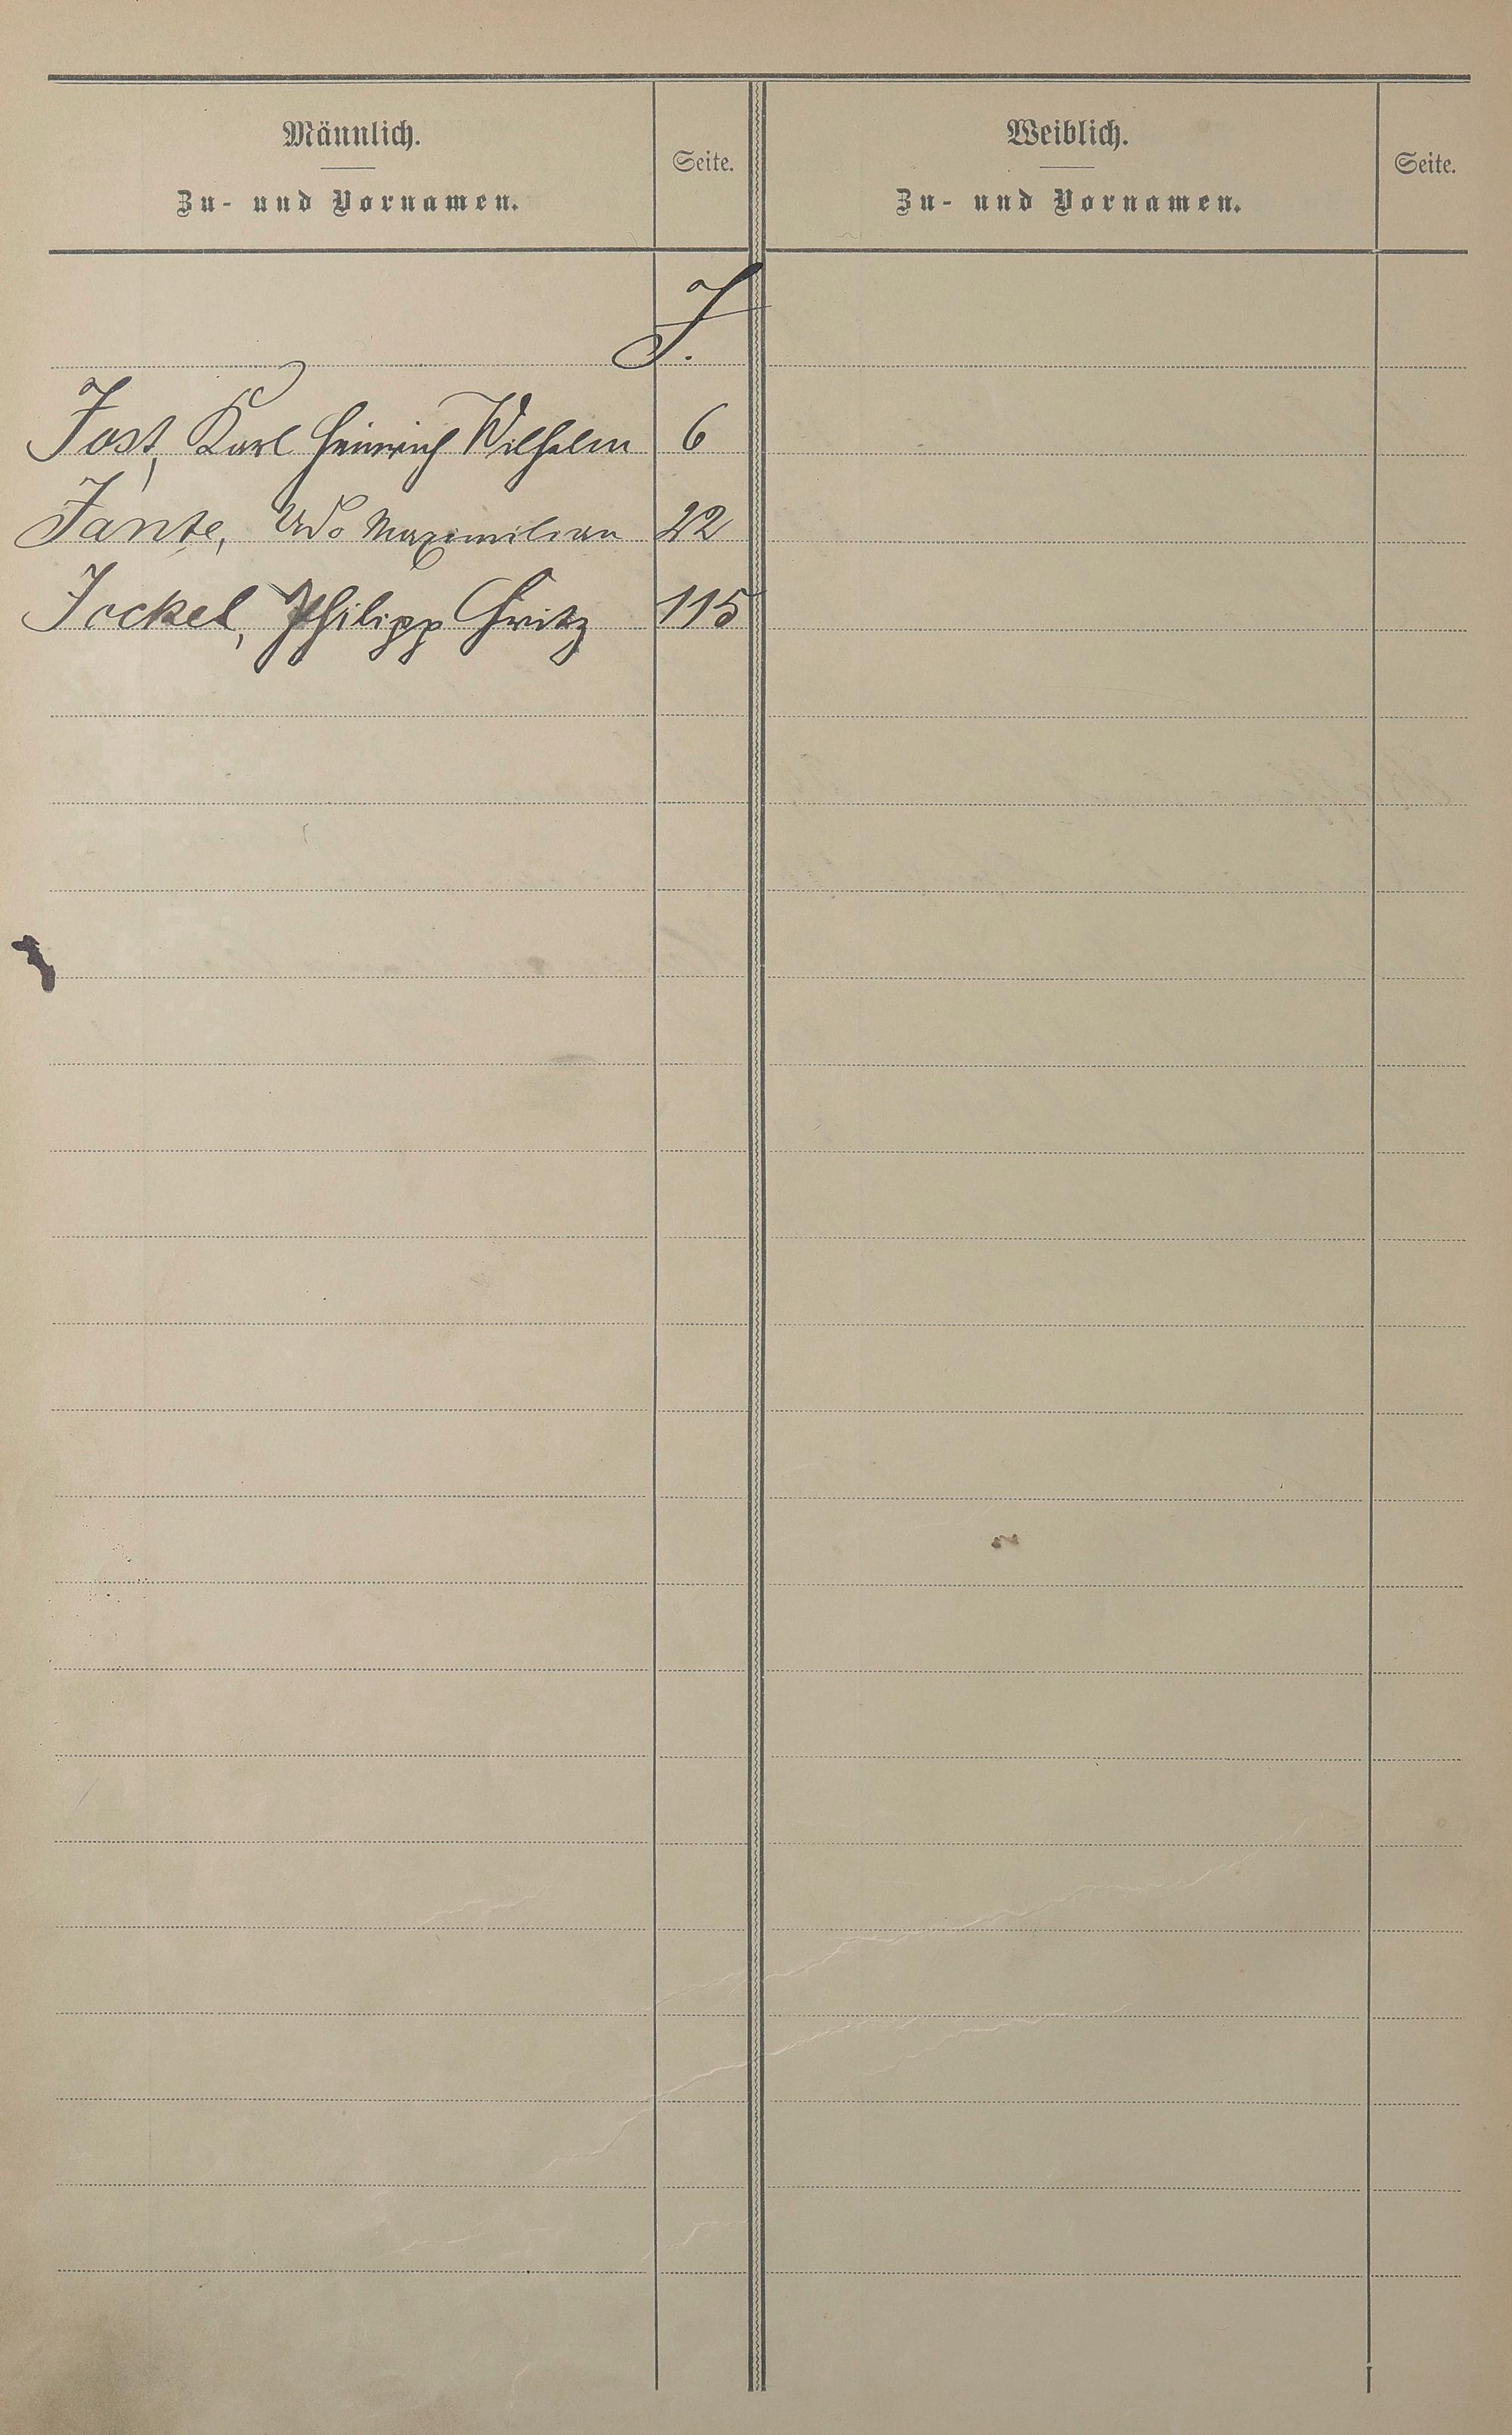 Männlich.
Zu- und Vornamen.
Seite.
Weiblich.
Zu- und Vornamen.
Seite.
J.
Jost, Karl Heinrich Wilhelm 6
Jante, Udo Maximilian 22
Jockel, Philipp Fritz 115